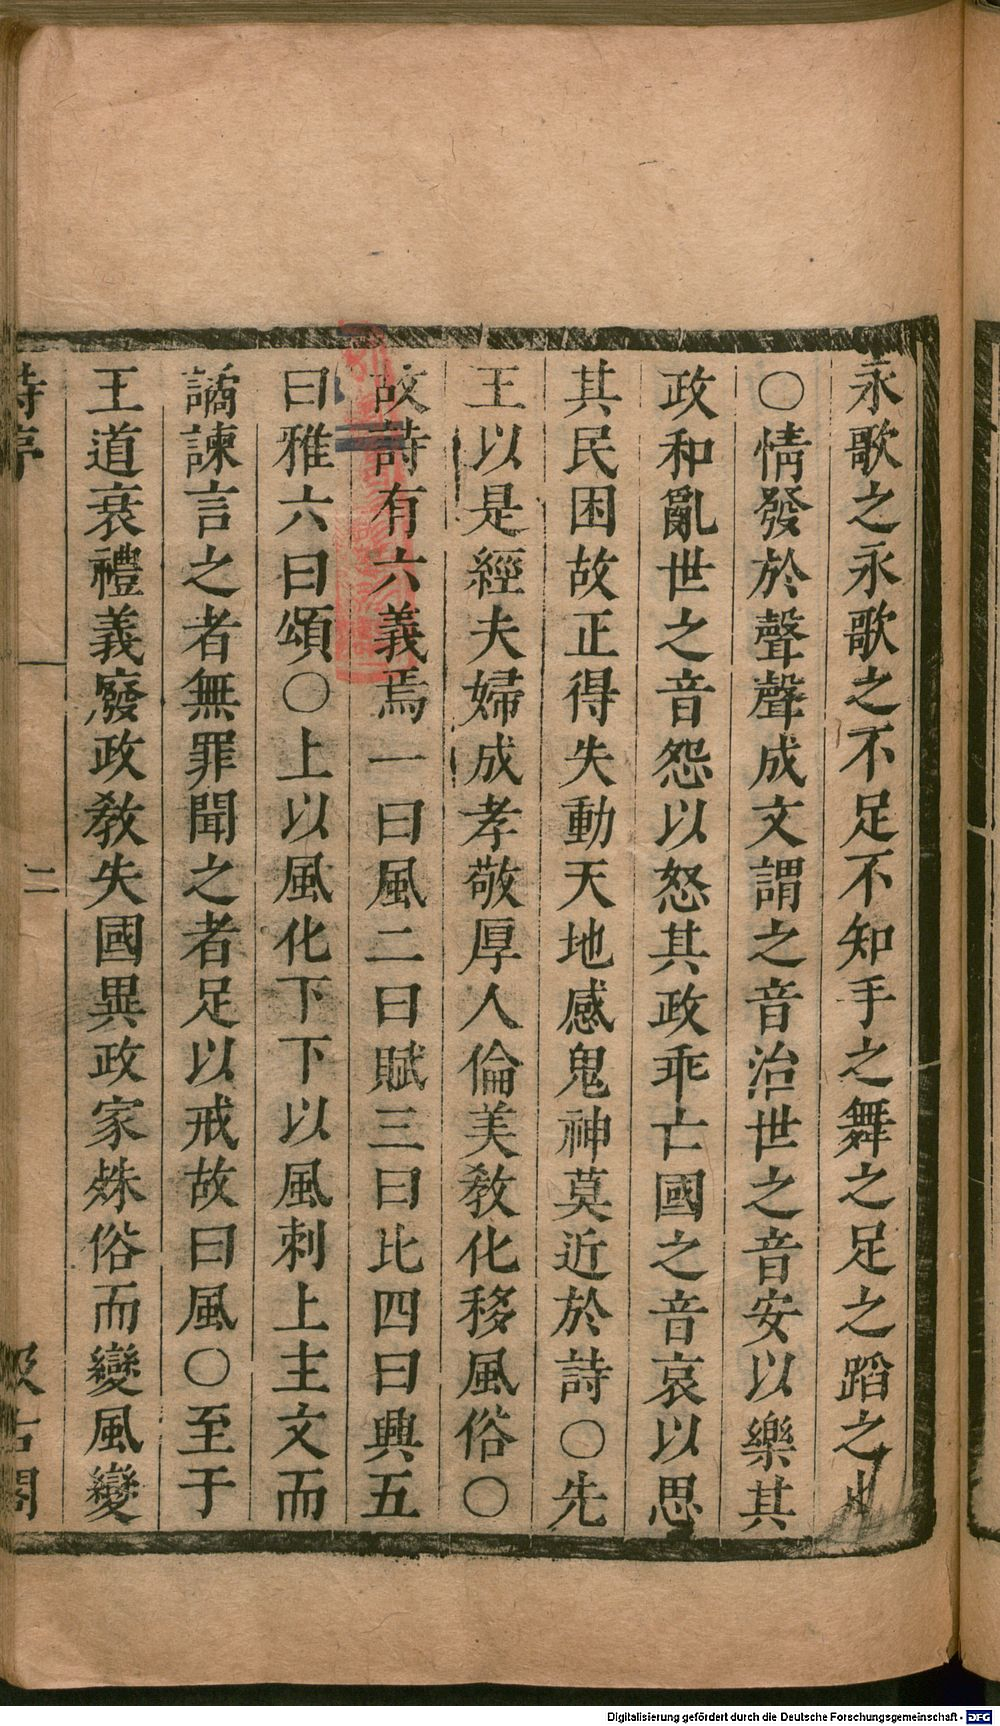 永歌之永歌之不足不知手之舞之足之蹈之也
○情發於聲聲成文謂之音治世之音安以樂其
政和亂世之音怨以怒其政乖亡國之音哀以思
其民困故正得失動天地感鬼神莫近於詩○先
王以是經夫婦成孝敬厚人倫美敎化移風俗○
故詩有六義焉一曰風二曰賦三曰比四曰興五
曰雅六曰頌○上以風化下下以風刺上主文而
譎諫言之者無罪聞之者足以戒故曰風○至于
王道衰禮義廢政敎失國異政家殊俗而變風變
詩序 二 汲古閣
Digitalisierung gefördert durch die Deutsche Forschungsgemeinschaft - DFG